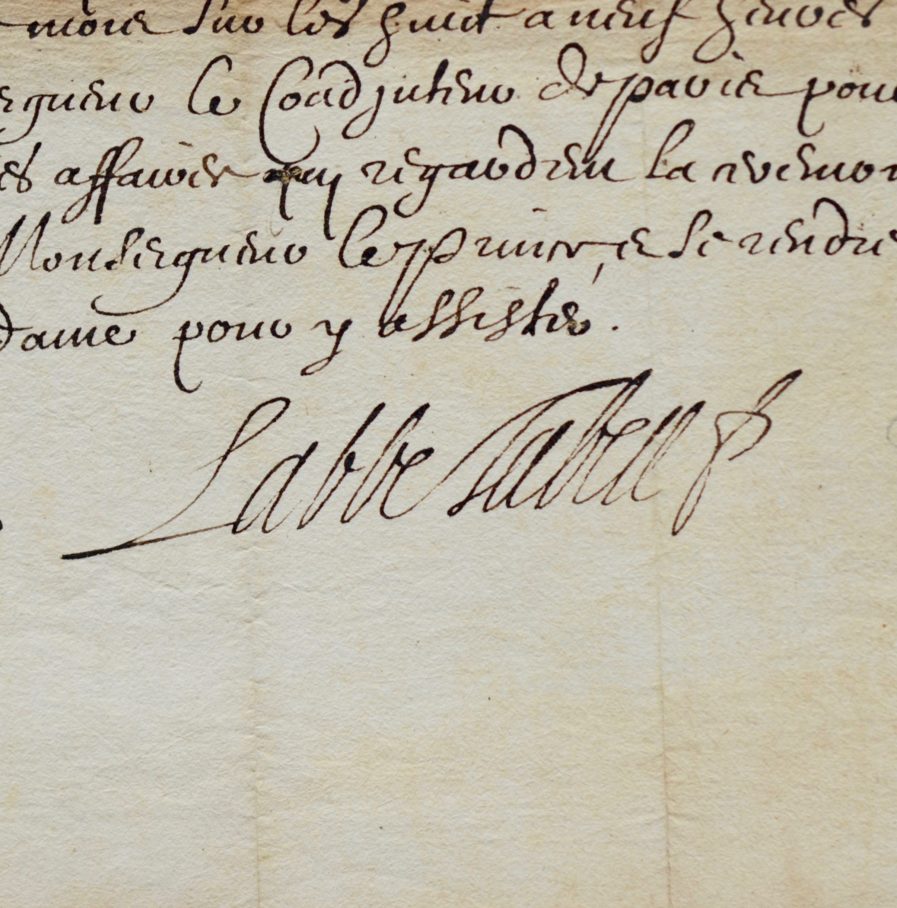 mois sur les huict a neuf heures
egneur le Coadjuteur de paris pour
es affaires qui regardent la ceremon
Monseigneur le prince, e se rendre
dame pour y assister.
Labbe